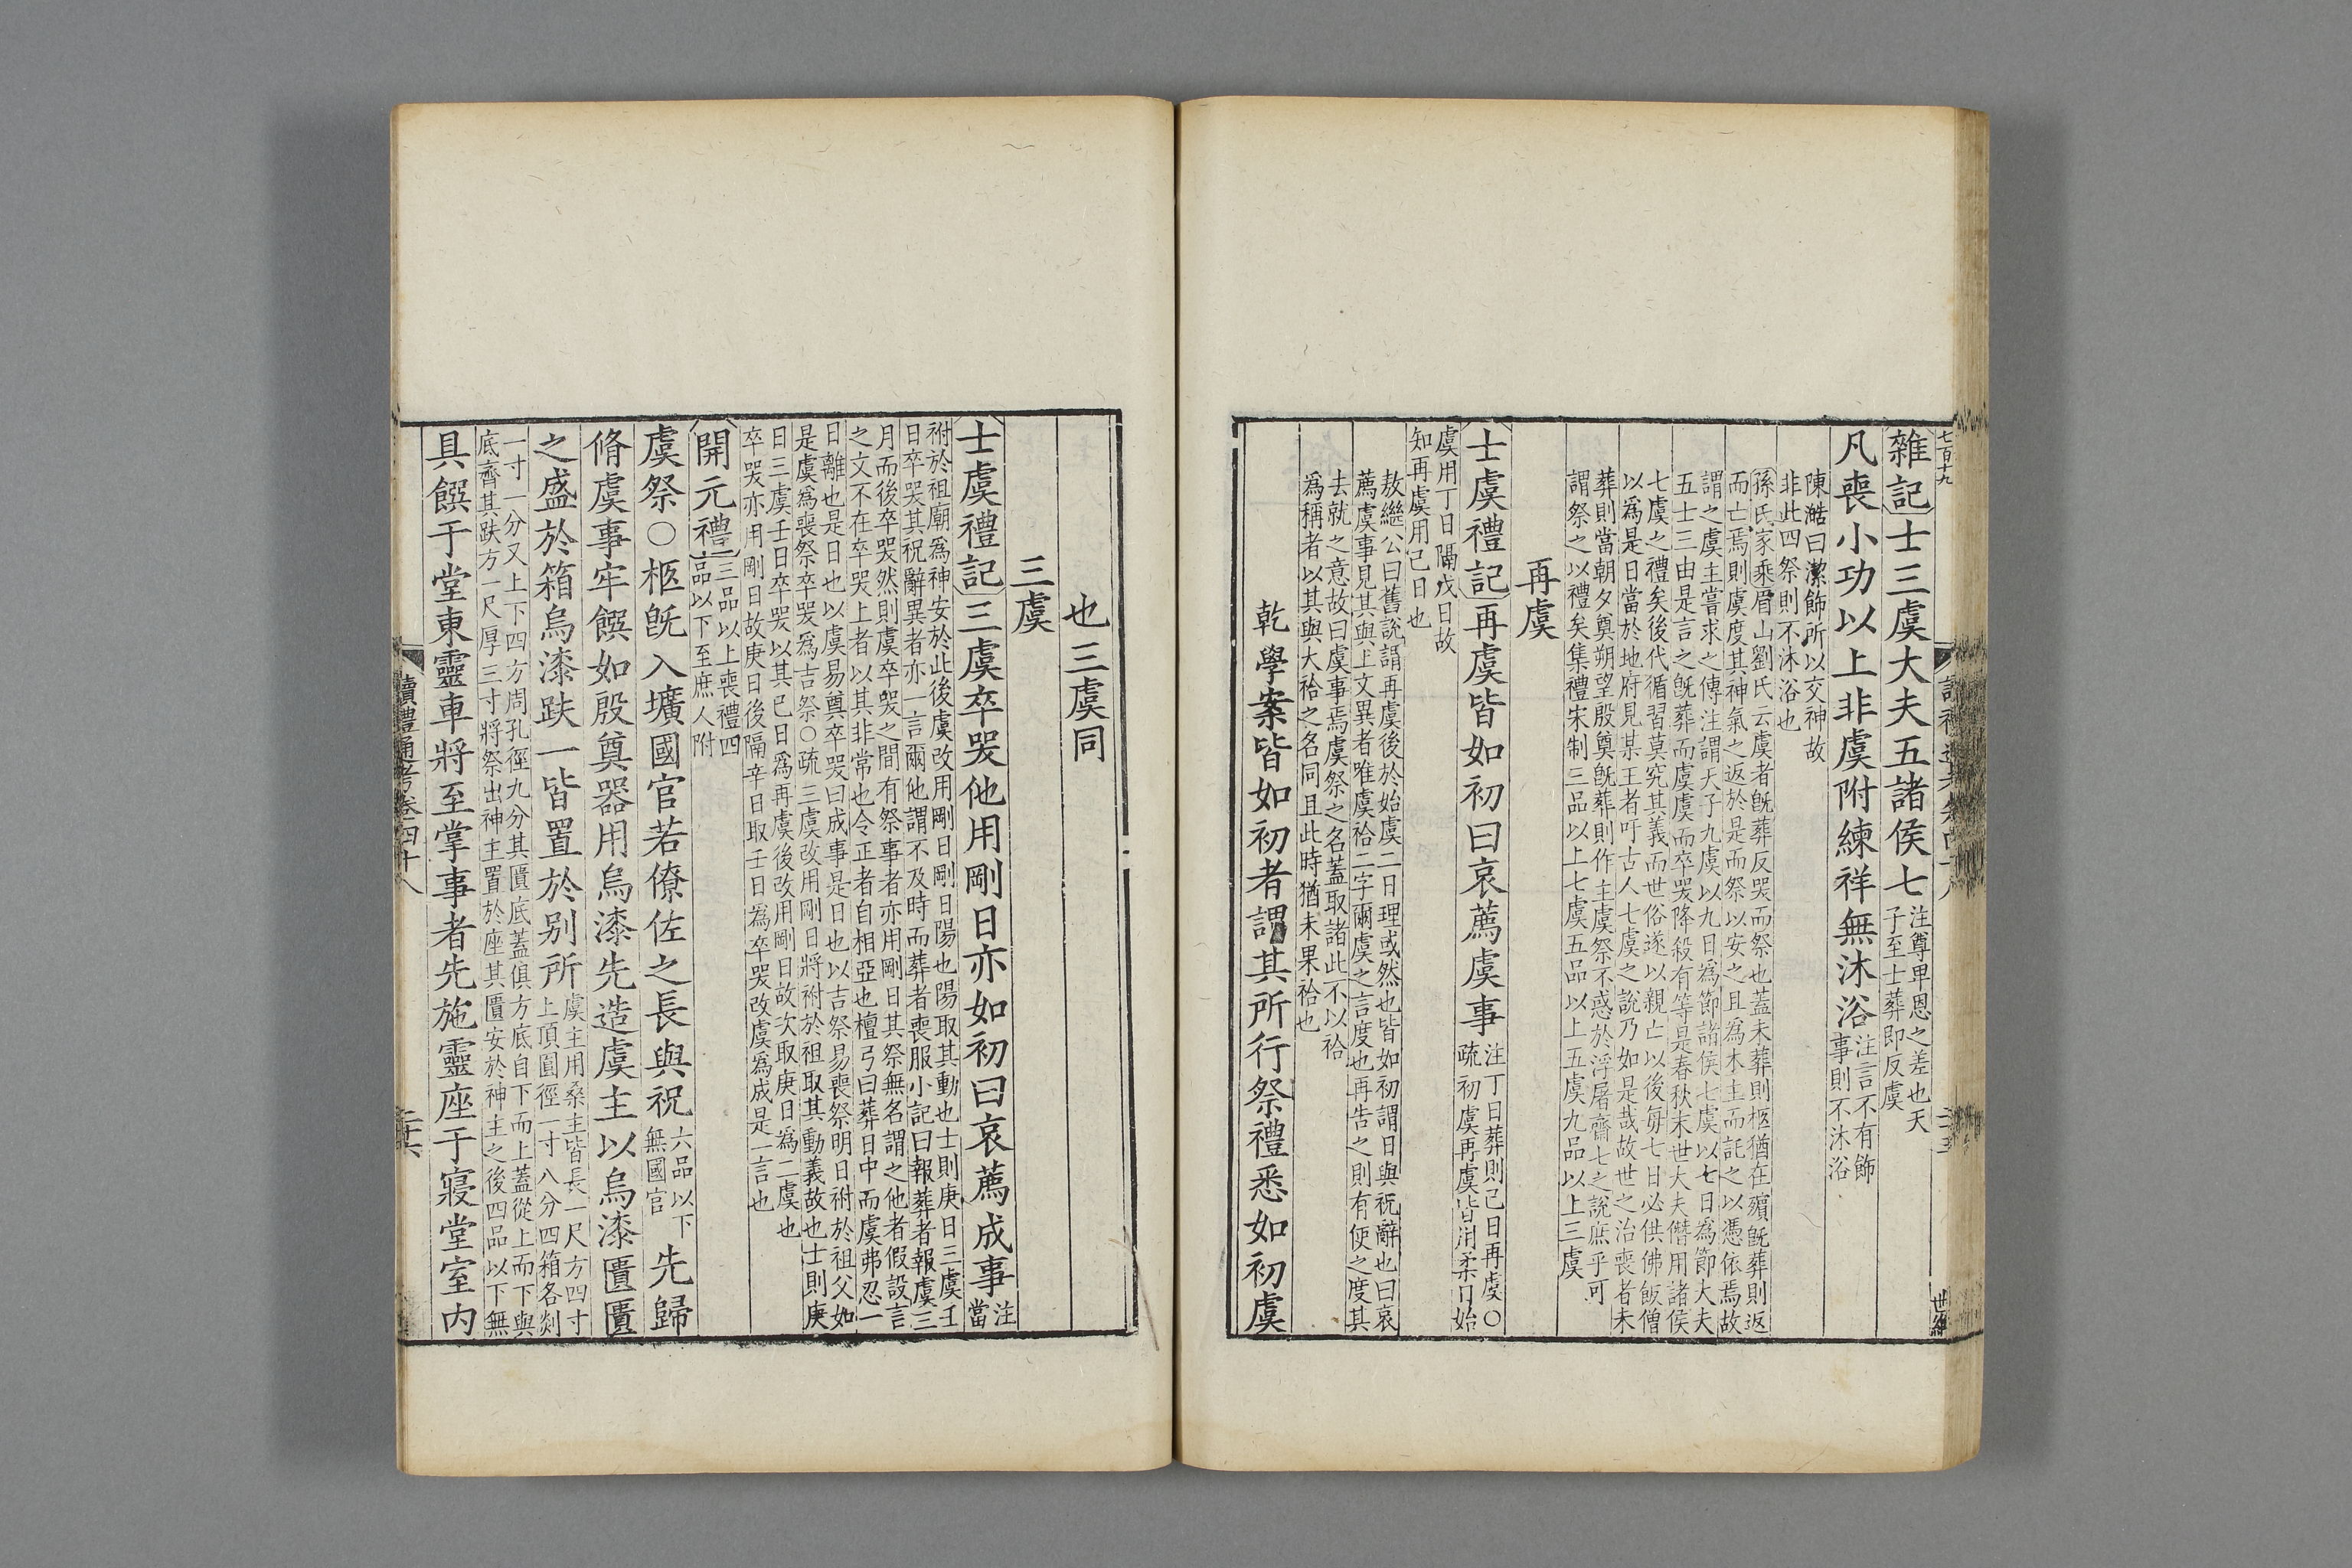 雜記士三虞大夫五諸侯七注尊卑恩之差也天
子至士葬即反虞
凡喪小功以上非虞附練祥無沐浴注言不有飾
事則不沐浴
陳澔曰潔飾所以交神故
非此四祭則不沐浴也
孫氏家乘眉山劉氏云虞者旣葬反哭而祭也蓋未葬則柩猶在殯旣葬則返
而亡焉則虞度其神氣之返於是而祭以安之且為木主而託之以憑依焉故
謂之虞主嘗求之傳注謂天子九虞以九日為節諸侯七虞以七日為節大夫
五士三由是言之旣葬而虞虞而卒哭降殺有等是春秋末世大夫僭用諸侯
七虞之禮矣後代循習莫究其義而世俗遂以親亡以後每七日必供佛飯僧
以為是日當於地府見某王者吁古人七虞之說乃如是哉故世之治喪者未
葬則當朝夕奠朔望殷奠旣葬則作主虞祭不惑於浮屠齋七之說庶乎可
謂祭之以禮矣集禮宋制三品以上七虞五品以上五虞九品以上三虞
再虞
士虞禮記再虞皆如初曰哀薦虞事注丁日葬則己日再虞○
疏初虞再虞皆用柔日始
虞用丁日隔戊日故
知再虞用己日也
敖繼公曰舊說謂再虞後於始虞二日理或然也皆如初謂日與祝辭也曰哀
薦虞事見其與上文異者唯虞祫二字爾虞之言度也再告之則有使之度其
去就之意故曰虞事焉虞祭之名蓋取諸此不以祫
為稱者以其與大祫之名同且此時猶未果祫也
乾學案皆如初者謂其所行祭禮悉如初虞
也三虞同
三虞
士虞禮記三虞卒哭他用剛日亦如初曰哀薦成事注
當
祔於祖廟為神安於此後虞改用剛日剛日陽也陽取其動也士則庚日三虞壬
日卒哭其祝辭異者亦一言爾他謂不及時而葬者喪服小記曰報葬者報虞三
月而後卒哭然則虞卒哭之間有祭事者亦用剛日其祭無名謂之他者假設言
之文不在卒哭上者以其非常也令正者自相亞也檀弓曰葬日中而虞弗忍一
日離也是日也以虞易奠卒哭曰成事是日也以吉祭易喪祭明日祔於祖父如
是虞為喪祭卒哭為吉祭○疏三虞改用剛日將祔於祖取其動義故也士則庚
日三虞壬日卒哭以其己日為再虞後改用剛日故次取庚日為三虞也
卒哭亦用剛日故庚日後隔辛日取壬日為卒哭改虞為成是一言也
開元禮三品以上喪禮四
品以下至庶人附
虞祭○柩旣入壙國官若僚佐之長與祝六品以下
無國官先歸
脩虞事牢饌如殷奠器用烏漆先造虞主以烏漆匱匱
之盛於箱烏漆趺一皆置於别所虞主用桑主皆長一尺方四寸
上頂圓徑一寸八分四箱各剡
一寸一分又上下四方周孔徑九分其匱底蓋俱方底自下而上蓋從上而下與
底齊其趺方一尺厚三寸將祭出神主置於座其匱安於神主之後四品以下無
具饌于堂東靈車將至掌事者先施靈座于寢堂室内
讀禮通考卷四十八
二十六